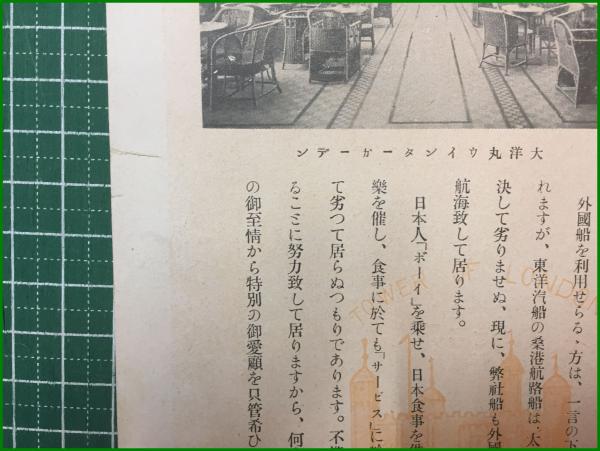 大洋丸ウインターガーデン
外國船を利用せらるゝ方は、一言の下
れますが、東洋汽船の桑港航路船は、太
決して劣りませぬ、現に、弊社船も外國
航海致して居ります。
日本人「ボーイ」を乘せ、日本食事を供
樂を催し、食事に於ても「サービス」に於
て劣つて居らぬつもりであります。不
ることに努力致して居りますから、何
の御至情から特別の御愛顧を只管希ひ
TOWER OF LONDON